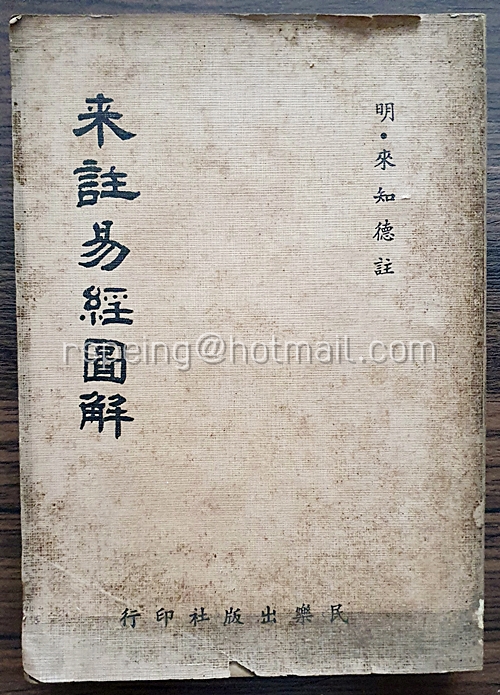 明·來知德註
来註易經圖解
民樂出版社印行